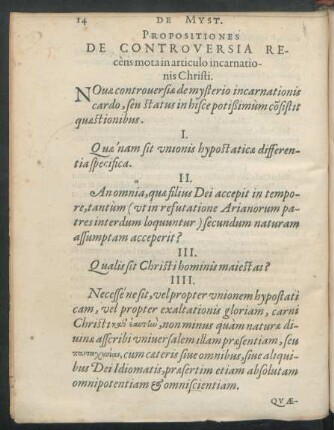 14 DE MYST.
PROPOSITIONES
DE CONTROVERSIA RE-
cèns mota in articulo incarnatio-
nis Christi.
NOuæ controuersiæ de mysterio incarnationis
cardo, seu status in hisce potißimùm cõsistit
quæstionibus.
I.
Quæ nam sit vnionis hypostaticæ differen-
tia specifica.
II.
An omnia, quæ filius Dei accepit in tempo-
re, tantùm (vt in refutatione Arianorum pa-
tres interdum loquuntur) secundum naturam
assumptam acceperit?
III.
Qualis sit Christi hominis maiestas?
IIII.
Necesse ne sit, vel propter vnionem hypostati
cam, vel propter exaltationis gloriam, carni
Christi καθ' ἑαυτὴν, non minus quàm naturæ di-
uinæ asscribi vniuersalem illam præsentiam, seu
cum cæteris siue omnibus, siue aliqui-
bus Dei Idiomatis, præsertim etiam absolutam
omnipotentiam & omniscientiam.
QVÆ-